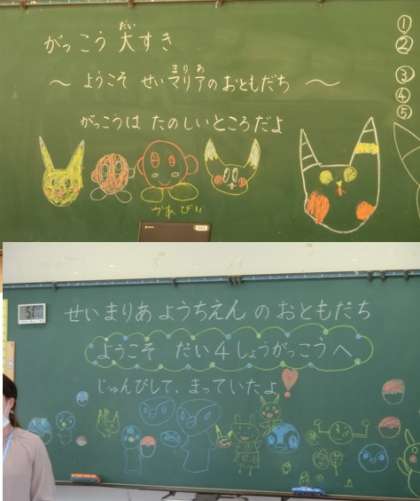 がっこう大すき
だい
～ ようこそ せいマリアのおともだち ～
まりあ
がっこうは たのしいところだよ
かあびい
①
②
③
④
⑤
せいまりあ ようちえん の おともだち
ようこそ だい4しょうがっこうへ
じゅんびして、まっていたよ!